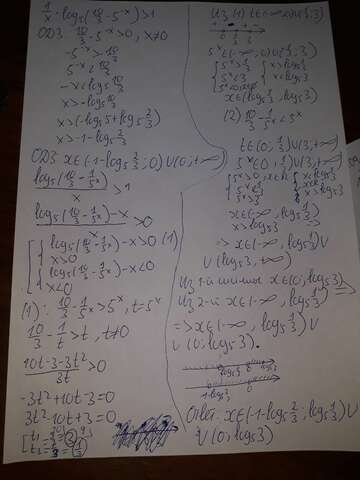 1/x · log₅(10/3 - 5^-x) > 1
ОДЗ 10/3 - 5^-x > 0, x ≠ 0
-5^-x > -10/3
5^-x < 10/3
-x < log₅ 10/3
x > -log₅ 10/3
x > -(log₅5 + log₅ 2/3)
x > -1 - log₅ 2/3
ОДЗ x∈(-1-log₅ 2/3; 0) ∪ (0; +∞)
log₅(10/3 - 1/5^x)/x > 1
(log₅(10/3 - 1/5^x) - x)/x > 0
[ { log₅(10/3 - 1/5^x) - x > 0 (1)
x > 0
{ log₅(10/3 - 1/5^x) - x < 0
x < 0
(1): 10/3 - 1/5^x > 5^x, t = 5^x
10/3 - 1/t > t, t ≠ 0
(10t - 3 - 3t²)/3t > 0
-3t² + 10t - 3 = 0
3t² - 10t + 3 = 0
Из (1) t∈(-∞; 0) ∪ (1/3; 3)
5^x ∈ (-∞, 0) ∪ (1/3; 3)
x∈(log₅ 1/3, log₅3)
(2) 10/3 - 1/5^x < 5^x
t∈(0, 1/3) ∪ (3, +∞)
5^x ∈ (0, 1/3) ∪ (3, +∞)
x∈(-∞, log₅ 1/3)
x > log₅3 =>
=> x∈(-∞, log₅ 1/3) ∪
∪ (log₅3, +∞)
Из 1-й x∈(0, log₅3)
Из 2-й x∈(-∞, log₅ 1/3) =>
=> x∈(-∞, log₅ 1/3) ∪
∪ (0; log₅3).
Ответ: x∈(-1-log₅ 2/3; log₅ 1/3) ∪
∪ (0; log₅3)